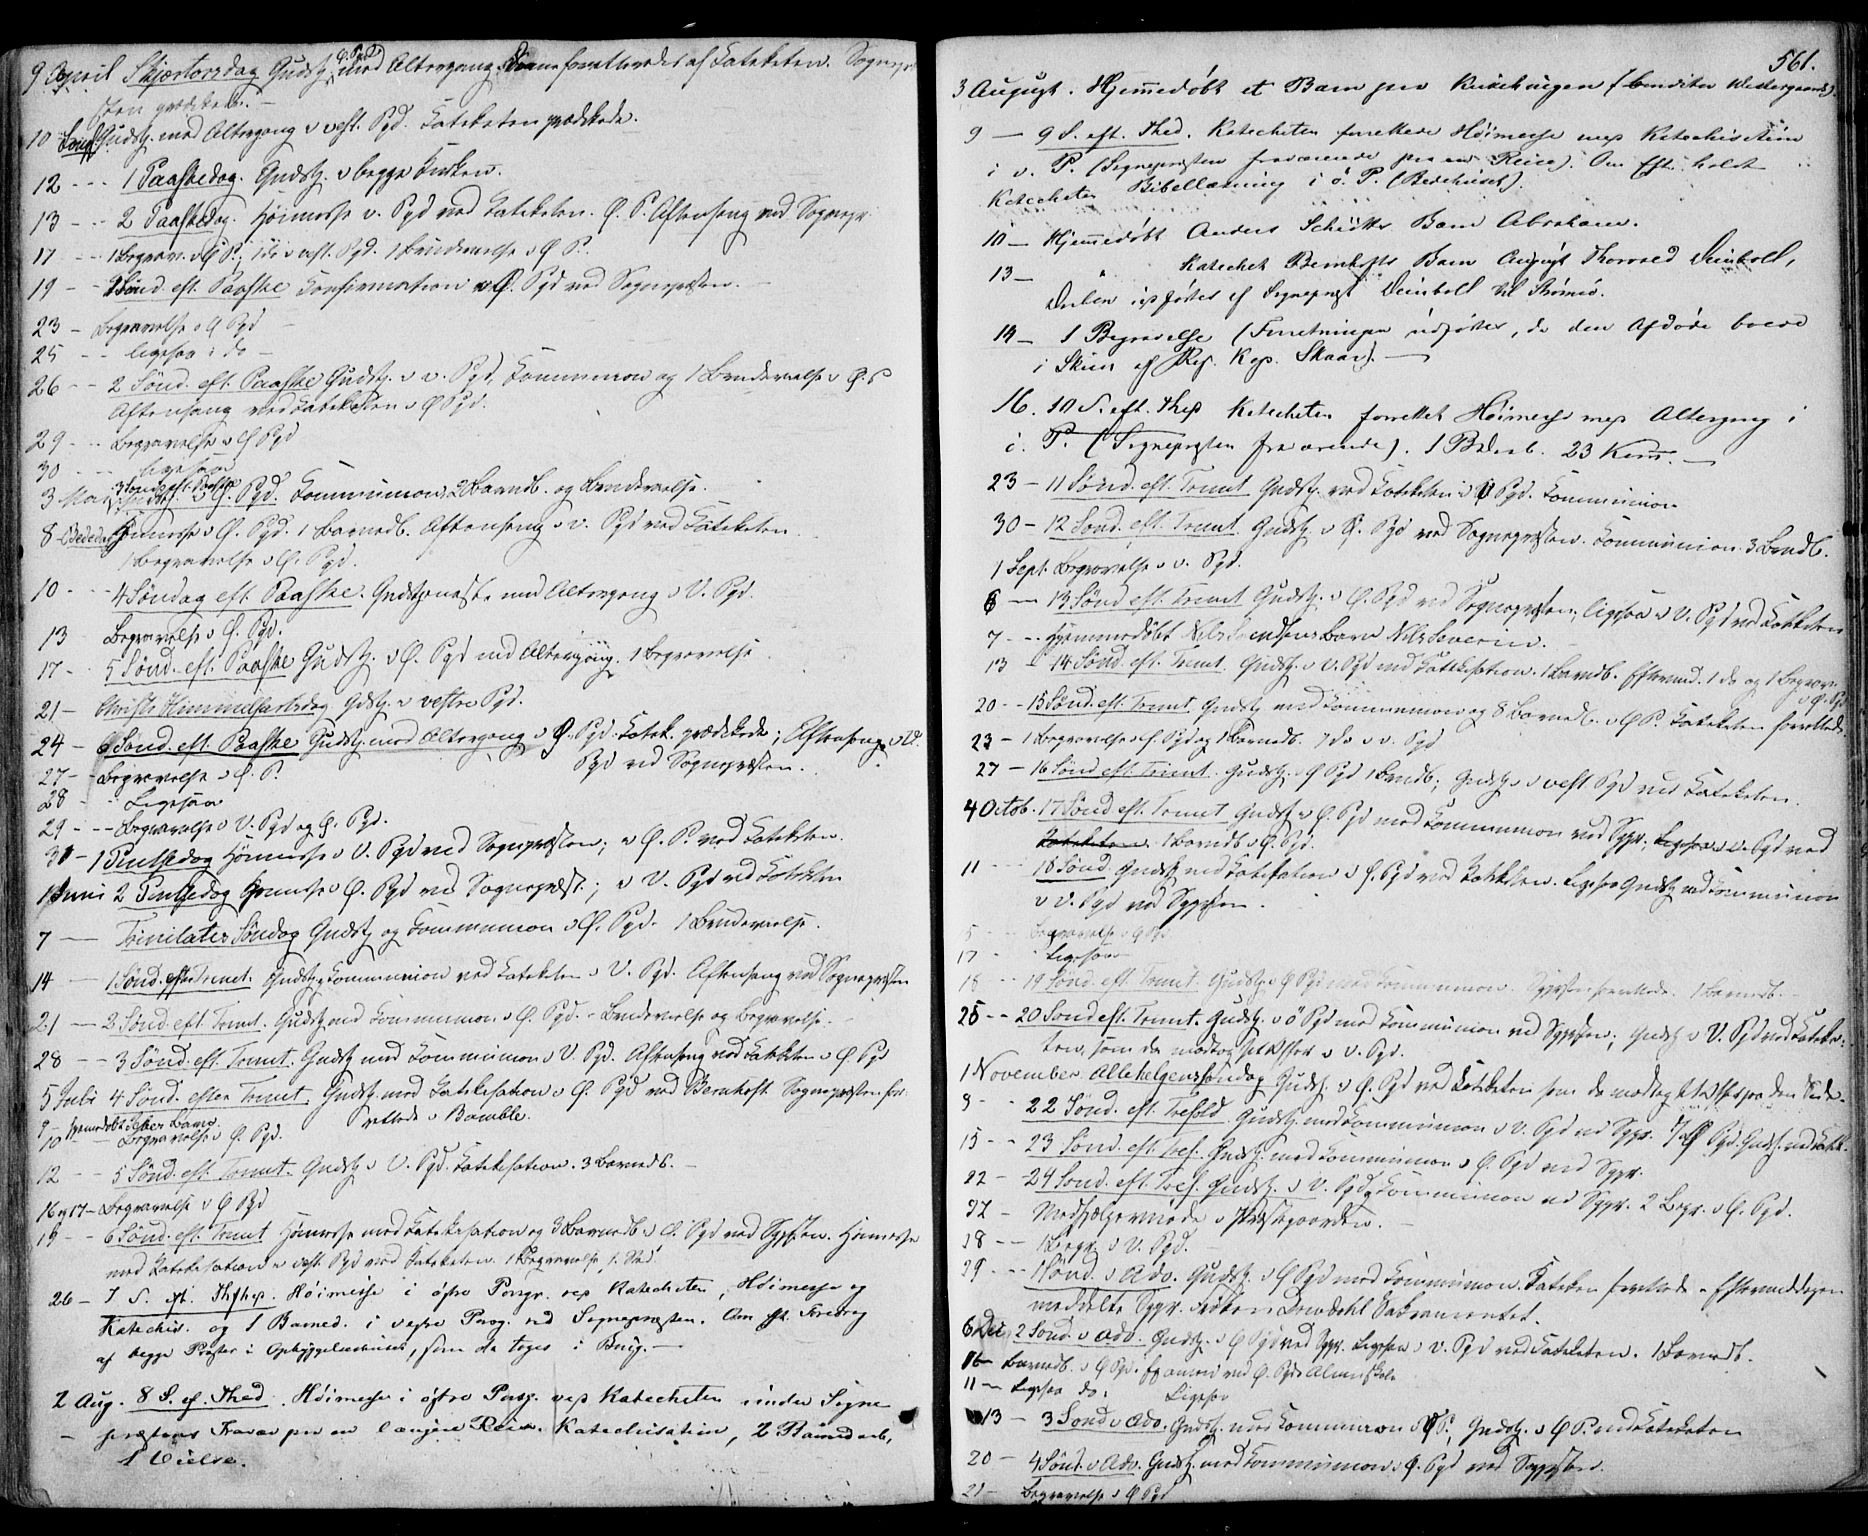 9 April Skjærtorsdag Gudstj. med Altergang. forrettedes af Kateketen. Sognepr
sten prædikede. –
10 Gudstj. med Altergang i vest. Pgd. Kateketen prædikede.
12 - - - 1 Paaskedag. Gudstj. i begge Kirker.
13 - - 2 Paaskedag. Høimesse v. Pgd ved Kateketen. Ø. P. Aftensang ved Sognepr.
17 - - - 1 Begrav. i Ø P., 1 do i vest. Pgd. 1 Brudevielse i Ø P.
19 - - 1 Sønd. eft. Paaske Confirmation i Ø. Pgd ved Sognepresten.
23 - Begravelse i Ø Pgd
25 - - ligesaa i do –
26 - - 2 Sønd. eft. Paaske Gudstj. i v. Pgd, Communion og 1 Brudevielse i Ø. P
Aftensang ved Kateketen i Ø Pgd.
29 - - Begravelse i Ø Pgd
30 - - - ligesaa
3 Mai 3 Sønd. eft. Paaske i Ø. Pgd. Communion, 2 Barnedb. og Brudevielse.
8 - Bededag Høimesse i Ø. Pgd. 1 Barnedb. Aftensang i v. Pgd ved Kateketen
1 Begravelse i Ø. Pgd.
10 - - - 4 Søndag eft. Paaske. Gudstjeneste med Altergang i V. Pgd.
13 - Begravelse i Ø. Pgd.
17 - - 5 Sønd. eft. Paaske Gudstj. i Ø. Pgd med Altergang. 1 Begravelse
21 - Christi Himmelfartsdag Gdstj. i vestre Pgd.
24 - 6 Sønd. eft. Paaske Gudstj. med Altergang i Ø. Pgd. Katek. prædikede; Aftensang i V.
Pgd ved Sognepresten.
27 - - Begravelse i Ø. P.
28 - - Ligesaa
29 - - - Begravelse i V. Pgd og Ø. Pgd.
31 - 1 Pintsedag Høimesse i V. Pgd ved Sognepresten; i Ø. P. ved Kateketen.
1 Juni 2 Pintsedag Høimesse i Ø. Pgd ved Sognepræst.; i V. Pgd ved Kateketen
7 — Trinitatis Søndag Gudstj og Communion i Ø. Pgd. 1 Brudevielse.
14 — 1 Sønd. efter Trinit. Gudstj. Communion ved Kateketen i V. Pgd. Aftensang ved Sognepresten
21 — 2 Sønd. eft. Trinit. Gudstj med Communion i Ø. Pgd. - Brudevielse og Begravelse.
28 - - 3 Sønd. eft. Trinit. Gudstj med Communion i V. Pgd. Aftensang ved Kateketen i Ø Pgd
5 Juli 4 Sønd. efter Trinit. Gudstj. med Katekisation i Ø. Pgd ved Bernhoft. Sognepresten for
rettede i Bamble.
9 - Hjemmedøbt Barn
10 - - Begravelse i Ø. Pgd.
12 — 5 Sønd. eft. Trinit. Gudstj i V. Pgd. Katekisation. 3 Barnedb. –
16 og 17 - Begravelse i Ø Pgd
19 - - 6 Sønd. eft. Trinit Høimesse med Katekisation og 3 Barnedb i Ø. Pgd ved Sgpsten. Høimesse
med Katekisation i vest. Pgd ved Kateketen. 1 Begravelse
26 - 7 S. eft. Høimesse i østre Porgr. ved Katecheten, Høimesse og
Katechis. og 1 Barned. i vestre Porg. ved Sognepresten. Om Eft. Foredrag
af begge Præster i Opbyggelseshuset, som da toges i Brug. —
2 Aug. 8 S. ef. Høimesse i østre Porsg. ved Katecheten under Sogne
- prestens Fravær paa en længere Reise. Katechisation, 2 Barnedaab,
1 Vielse.
561.
3 August. Hjemmedøbt et Barn paa
9 — 9 S. eft. Katecheten forrettede Høimesse med Katechisation
i v. P. (Sognepresten fraværende paa en Reise). Om Eft. holdt
Katecheten Bibellæsning i ö. P. (Bedehuset).
10 — Hjemmedøbt Anders Schutts Barn Abraham.
13 — " Katechet Bernhofts Barn August Thorvald Deinboll,
udført af Sognepræst Deinboll til Strömsö.
14 — 1 Begravelse (Forretningen udførtes, da den Afdöde boede
i Skien af Kap. Skaar). —
16. 10 S. eft. Katecheten forrettet Høimesse med Altergang i
P. (Sognepresten fraværende). 1 Barnb. 23 Kom. —
23 - 11 Sønd. eft. Trinit Gudstj. ved Kateketen i Ø Pgd. Communion
30 - 12 Sønd. eft. Trinit Gudstj. i Ø. Pgd ved Sognepresten. Communion. 3 Barndb.
1 Sept. Begravelse i v. Pgd.
6 — 13 Sønd eft. Trinit Gudstj. i Ø. Pgd ved Sognepresten; ligesaa i V. Pgd ved Kateketen
7 - - Hjemmedøbt Nils Barn Nils Severin.
13 - 14 Sønd. eft. Trinit. Gudstj. i V. Pgd med Katekisation. 1 Barnedb. Efterm. 1 do og 1 Begrav.
i Ø. Pgd
20 - - 15 Sønd. eft. Trinit. Gudstj med Communion og 8 Barnedb. i Ø P. Kateketen forrettede.
23 - 1 Begravelse i Ø. Pgd og 1 Barnedb. 1 do i v. Pgd
27 - 16 Sønd eft. Trinit. Gudstj. i Ø Pgd 1 Barndb; Gudstj i vest Pgd ved Kateketen.
4 Octob. 17 Sønd eft. Trinit Gudstj i Ø. Pgd med Communion ved Sgpr. Ligesaa i v. Pgd ved
Kateketen. 1 Barndb i Ø. Pgd.
11 - - - 18 Sønd Gudstj med Katekisation i Ø. Pgd ved Kateketen. Ligesaa Gudstj med Communion
i v. Pgd ved Sgpsten.
5 - - Begravelse i Ø Pgd
17 - - Ligesaa
18 - - 19 Sønd. eft. Trinit. Gudstj. i Ø Pgd med Communion. Sgpsten forrettede. 1 Barnedb. -
25 - - 20 Sønd eft. Trinit. Gudstj. i ö Pgd med Communion ved Sgpsten; Gudstj i V. Pgd ved Kateke-
ten, som da modtog i v. Pgd.
1 November. Allehelgenssøndag Gudstj. i Ø. Pgd ved Kateketen som da modtog
8 - - 22 Sönd. eft. Trefold. Gudstj. med Communion i V. Pgd ved Sgpr. i Ø Pgd. Gudstj. ved Katek.
15 - - 23 Sønd. eft. Tref. Gudstj. med Communion i Ø. Pgd ved Sgpr.
22 - 24 Sønd. eft. Tref. Gudstj. i V. Pgd Communion ved Sgpr. 2 Begr. i Ø. Pgd.
27 - Medhjælpermøde i Præstegaarden. -
28 - - 1 Begr. i V. Pgd.
29 - - 1 Sønd. i Adv. Gudstj. i Ø Pgd med Communion. Kateketen forrettede. Eftermiddagen
meddelte Sgpr. Frøken Sakramentet.
6 Dec 2 Sønd. i Adv. Gudstj. i Ø Pgd ved Sgpr. Ligesaa i v. Pgd ved Kateketen. 1 Barnedb.
16 - Barnedb. i Ø Pgd. Examen ved Ø. Pgds Almueskole
11 - Ligesaa do. Ligesaa
13 - 3 Sønd i Adv. Gudstj. med Communion i P; Gudstj. i Ø P. ved Kateketen
20 - 4 Sønd. i Adv. Gudstj. med Communion i Ø. Pgd ved Sgpsten.
21 - Begravelse i Ø Pgd